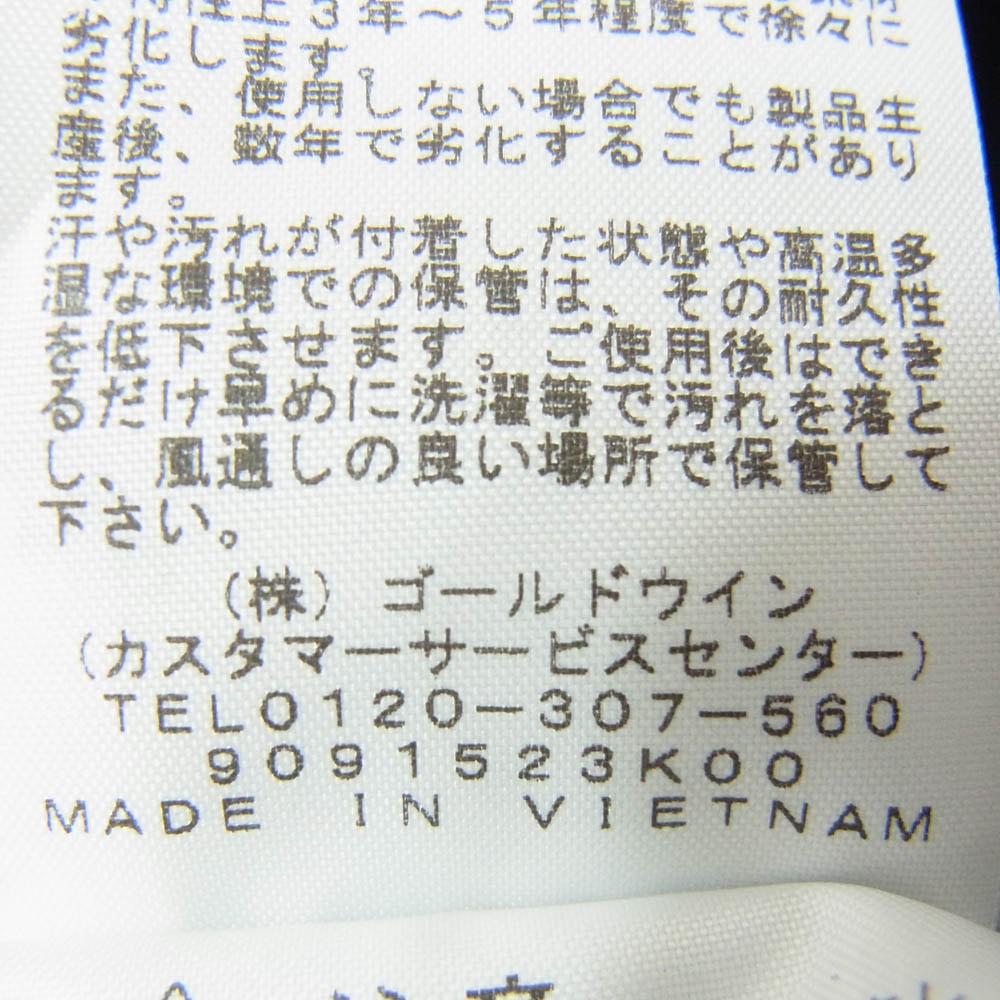 性上3年～5年程度で徐々に
劣化します。
また、使用しない場合でも製品生
産後、数年で劣化することがあり
ます。
汗や汚れが付着した状態や高温多
湿な環境での保管は、その耐久性
を低下させます。ご使用後はできる
るだけ早めに洗濯等で汚れを落と
し、風通しの良い場所で保管して
下さい。
(株)ゴールドウイン
(カスタマーサービスセンター)
TEL0120-307-560
9091523K00
MADE IN VIETNAM